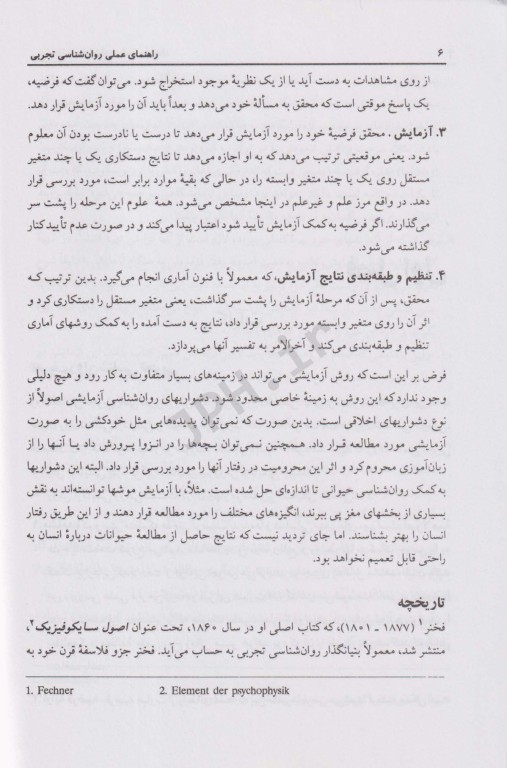 ۶ راهنمای عملی روان‌شناسی تجربی
از روی مشاهدات به دست آید یا از یک نظریهٔ موجود استخراج شود. می‌توان گفت که فرضیه،
یک پاسخ موقتی است که محقق به مسألهٔ خود می‌دهد و بعداً باید آن را مورد آزمایش قرار دهد.
۳. آزمایش . محقق فرضیهٔ خود را مورد آزمایش قرار می‌دهد تا درست یا نادرست بودن آن معلوم
شود. یعنی موقعیتی ترتیب می‌دهد که به او اجازه می‌دهد تا نتایج دستکاری یک یا چند متغیر
مستقل روی یک یا چند متغیر وابسته را، در حالی که بقیهٔ موارد برابر است، مورد بررسی قرار
دهد. در واقع مرز علم و غیرعلم در اینجا مشخص می‌شود. همهٔ علوم این مرحله را پشت سر
می‌گذارند. اگر فرضیه به کمک آزمایش تأیید شود اعتبار پیدا می‌کند و در صورت عدم تأیید کنار
گذاشته می‌شود.
۴. تنظیم و طبقه‌بندی نتایج آزمایش، که معمولاً با فنون آماری انجام می‌گیرد. بدین ترتیب که
محقق، پس از آن که مرحلهٔ آزمایش را پشت سر گذاشت، یعنی متغیر مستقل را دستکاری کرد و
اثر آن را روی متغیر وابسته مورد بررسی قرار داد، نتایج به دست آمده را به کمک روشهای آماری
تنظیم و طبقه‌بندی می‌کند و آخرالامر به تفسیر آنها می‌پردازد.
فرض بر این است که روش آزمایشی می‌تواند در زمینه‌های بسیار متفاوت به کار رود و هیچ دلیلی
وجود ندارد که این روش به زمینهٔ خاصی محدود شود. دشواریهای روان‌شناسی آزمایشی اصولاً از
نوع دشواریهای اخلاقی است. بدین صورت که نمی‌توان پدیده‌هایی مثل خودکشی را به صورت
آزمایشی مورد مطالعه قرار داد. همچنین نمی‌توان بچه‌ها را در انزوا پرورش داد یا آنها را از
زبان‌آموزی محروم کرد و اثر این محرومیت در رفتار آنها را مورد بررسی قرار داد. البته این دشواریها
به کمک روان‌شناسی حیوانی تا اندازه‌ای حل شده است. مثلاً، با آزمایش موشها توانسته‌اند به نقش
بسیاری از بخشهای مغز پی ببرند، انگیزه‌های مختلف را مورد مطالعه قرار دهند و از این طریق رفتار
انسان را بهتر بشناسند. اما جای تردید نیست که نتایج حاصل از مطالعهٔ حیوانات دربارهٔ انسان به
راحتی قابل تعمیم نخواهد بود.
تاریخچه
فخنر۱ (۱۸۷۷ ـ ۱۸۰۱)، که کتاب اصلی او در سال ۱۸۶۰، تحت عنوان اصول سایکوفیزیک۲،
منتشر شد، معمولاً بنیانگذار روان‌شناسی تجربی به حساب می‌آید. فخنر جزو فلاسفهٔ قرن خود به
1. Fechner 2. Element der psychophysik
JPH.ir